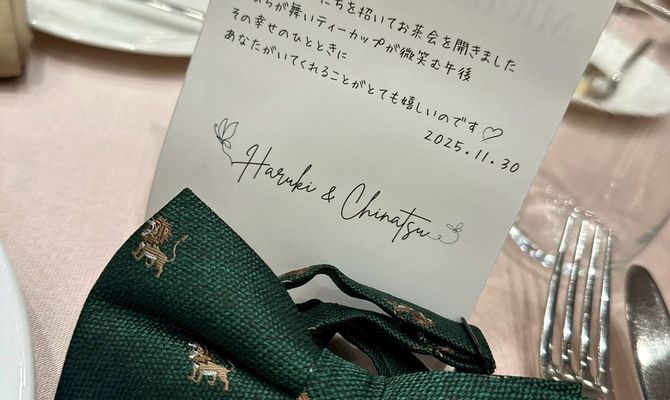 ちを招いてお茶会を開きました
が舞いティーカップが微笑む午後
その幸せのひとときに
あなたがいてくれることがとても嬉しいのです♡
2025.11.30
Haruki & Chinatsu